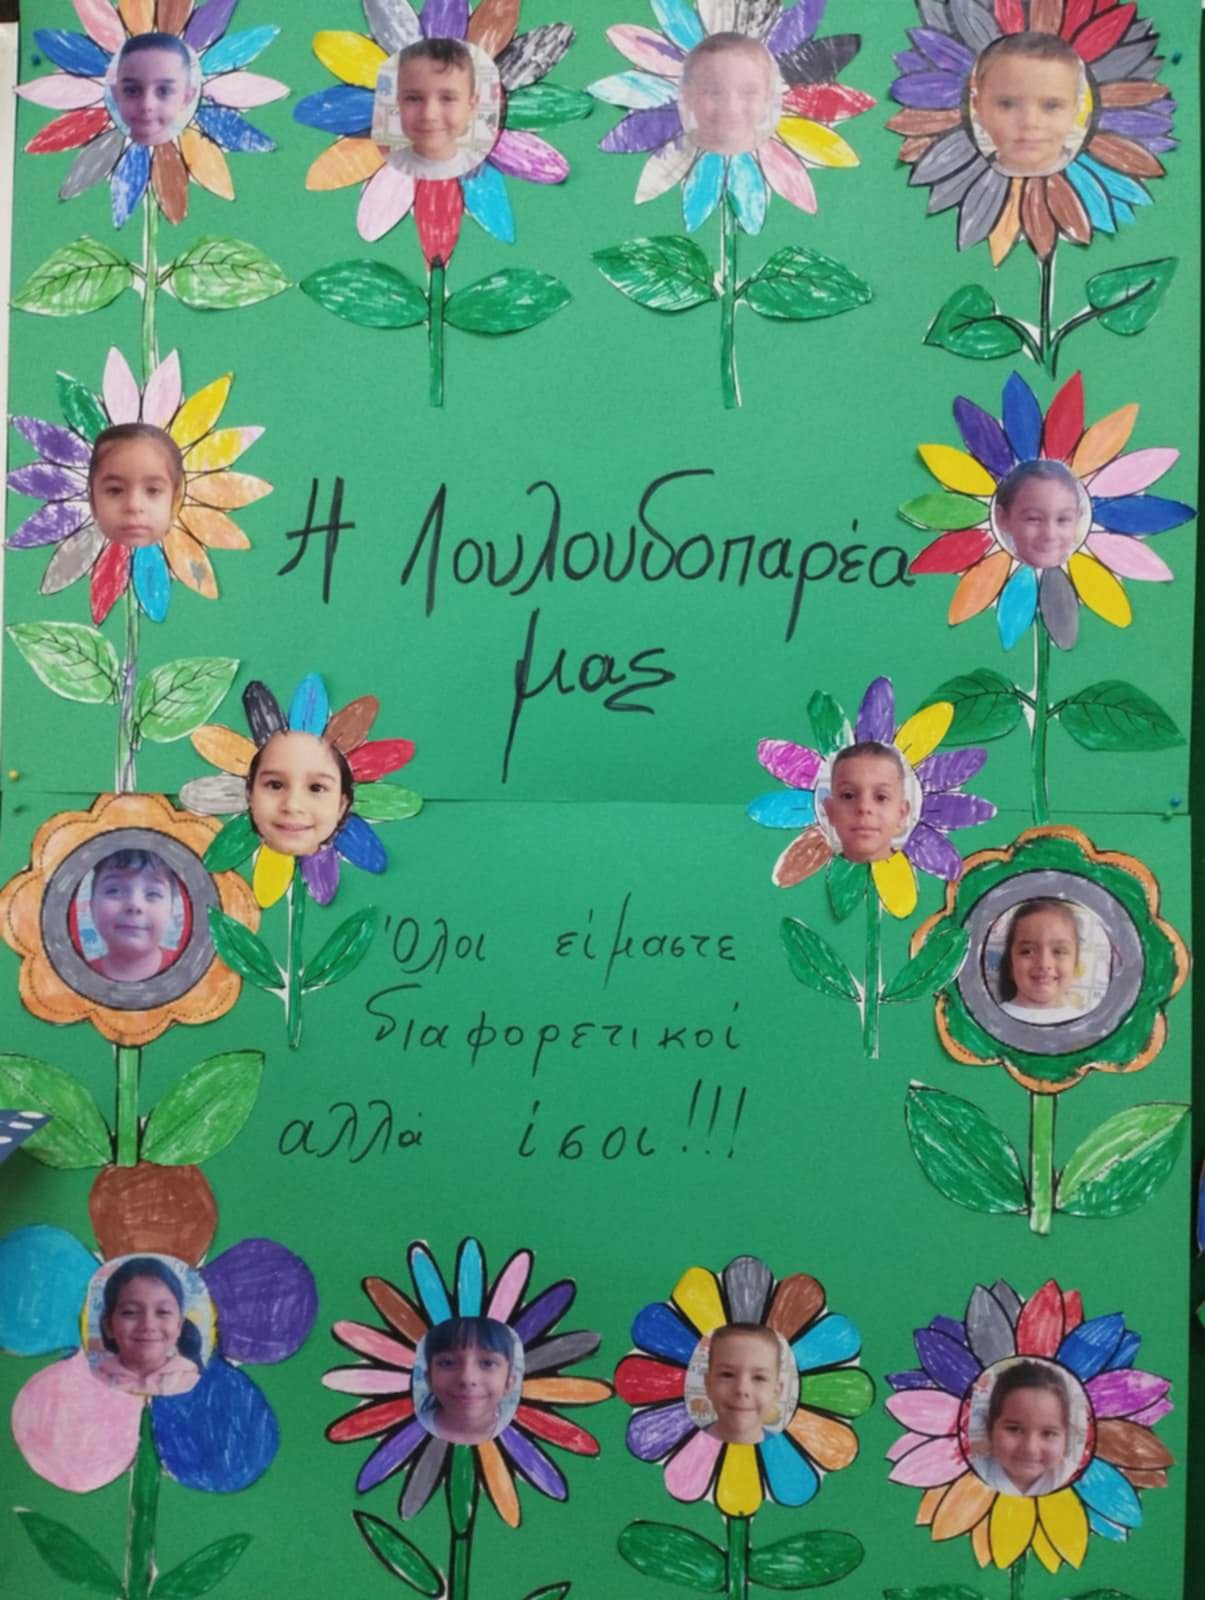 Η Λουλουδοπαρέα
μας
Όλοι είμαστε
διαφορετικοί
αλλά ίσοι!!!